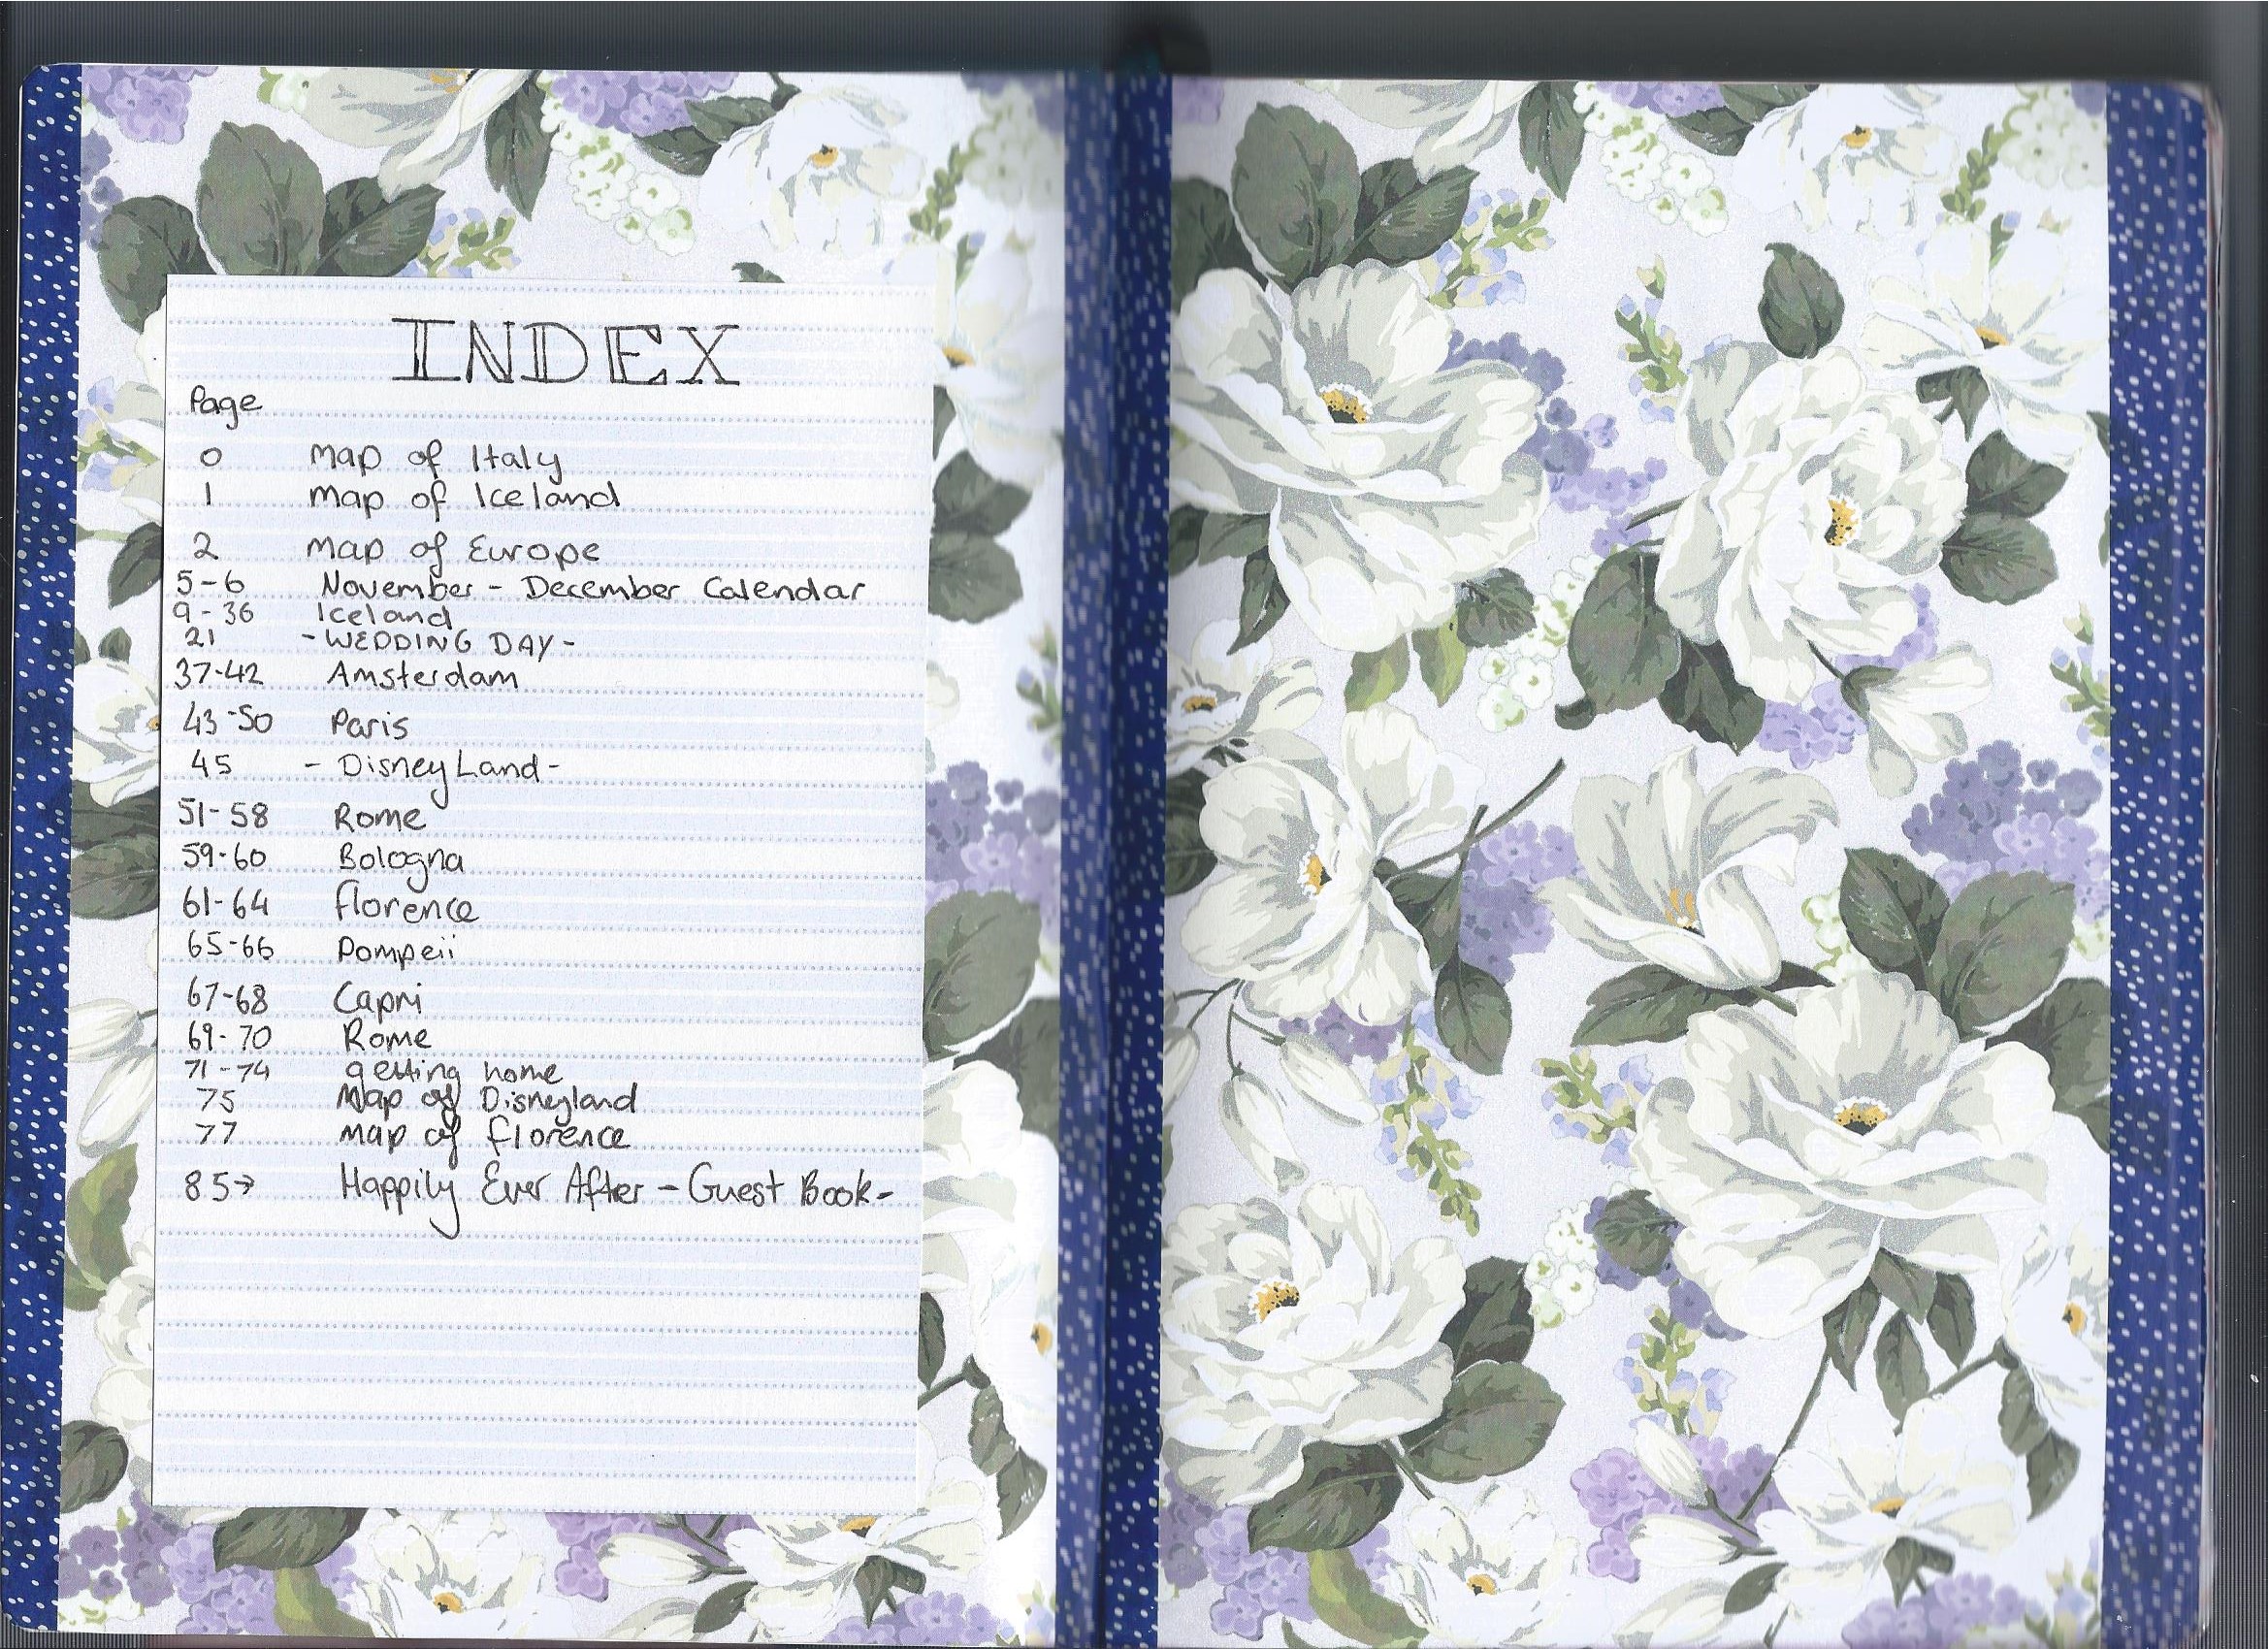 INDEX
Page
0 Map of Italy
1 Map of Iceland
2 Map of Europe
5-6 November - December Calendar
9-36 Iceland
21 - WEDDING DAY -
37-42 Amsterdam
43-50 Paris
45 - DisneyLand -
51-58 Rome
59-60 Bologna
61-64 Florence
65-66 Pompeii
67-68 Capri
69-70 Rome
71-74 getting home
75 Map of Disneyland
77 Map of Florence
85→ Happily Ever After - Guest Book -